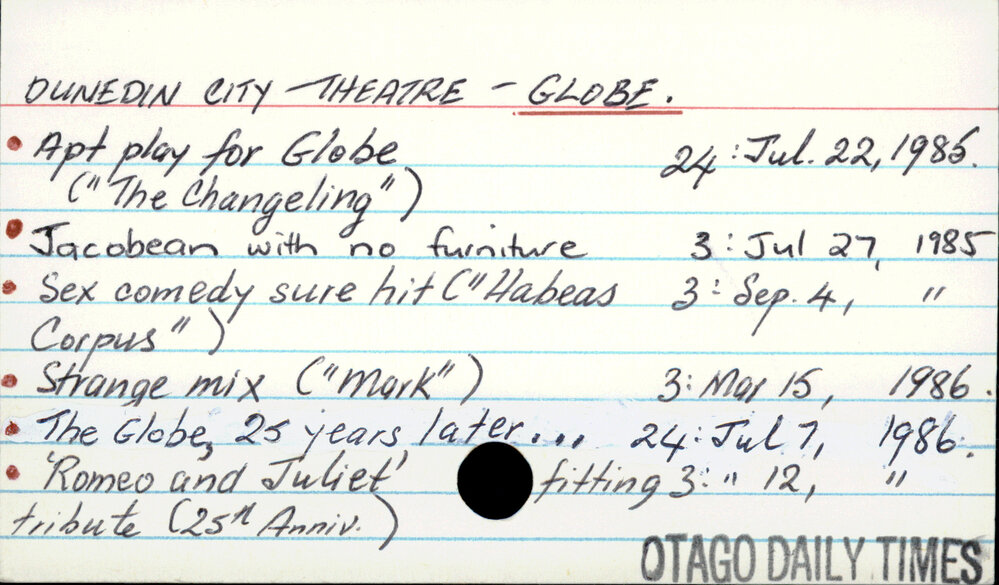 DUNEDIN CITY THEATRE - GLOBE.
• Apt play for Globe 24: Jul. 22, 1985.
("The Changeling")
• Jacobean with no furniture 3: Jul 27, 1985
• Sex comedy sure hit ("Habeas 3: Sep. 4, "
Corpus")
• Strange mix ("Mark") 3: Mar 15, 1986.
• The Globe, 25 years later... 24: Jul 7, 1986.
• 'Romeo and Juliet' fitting 3: " 12, "
tribute (25th Anniv.)
OTAGO DAILY TIMES